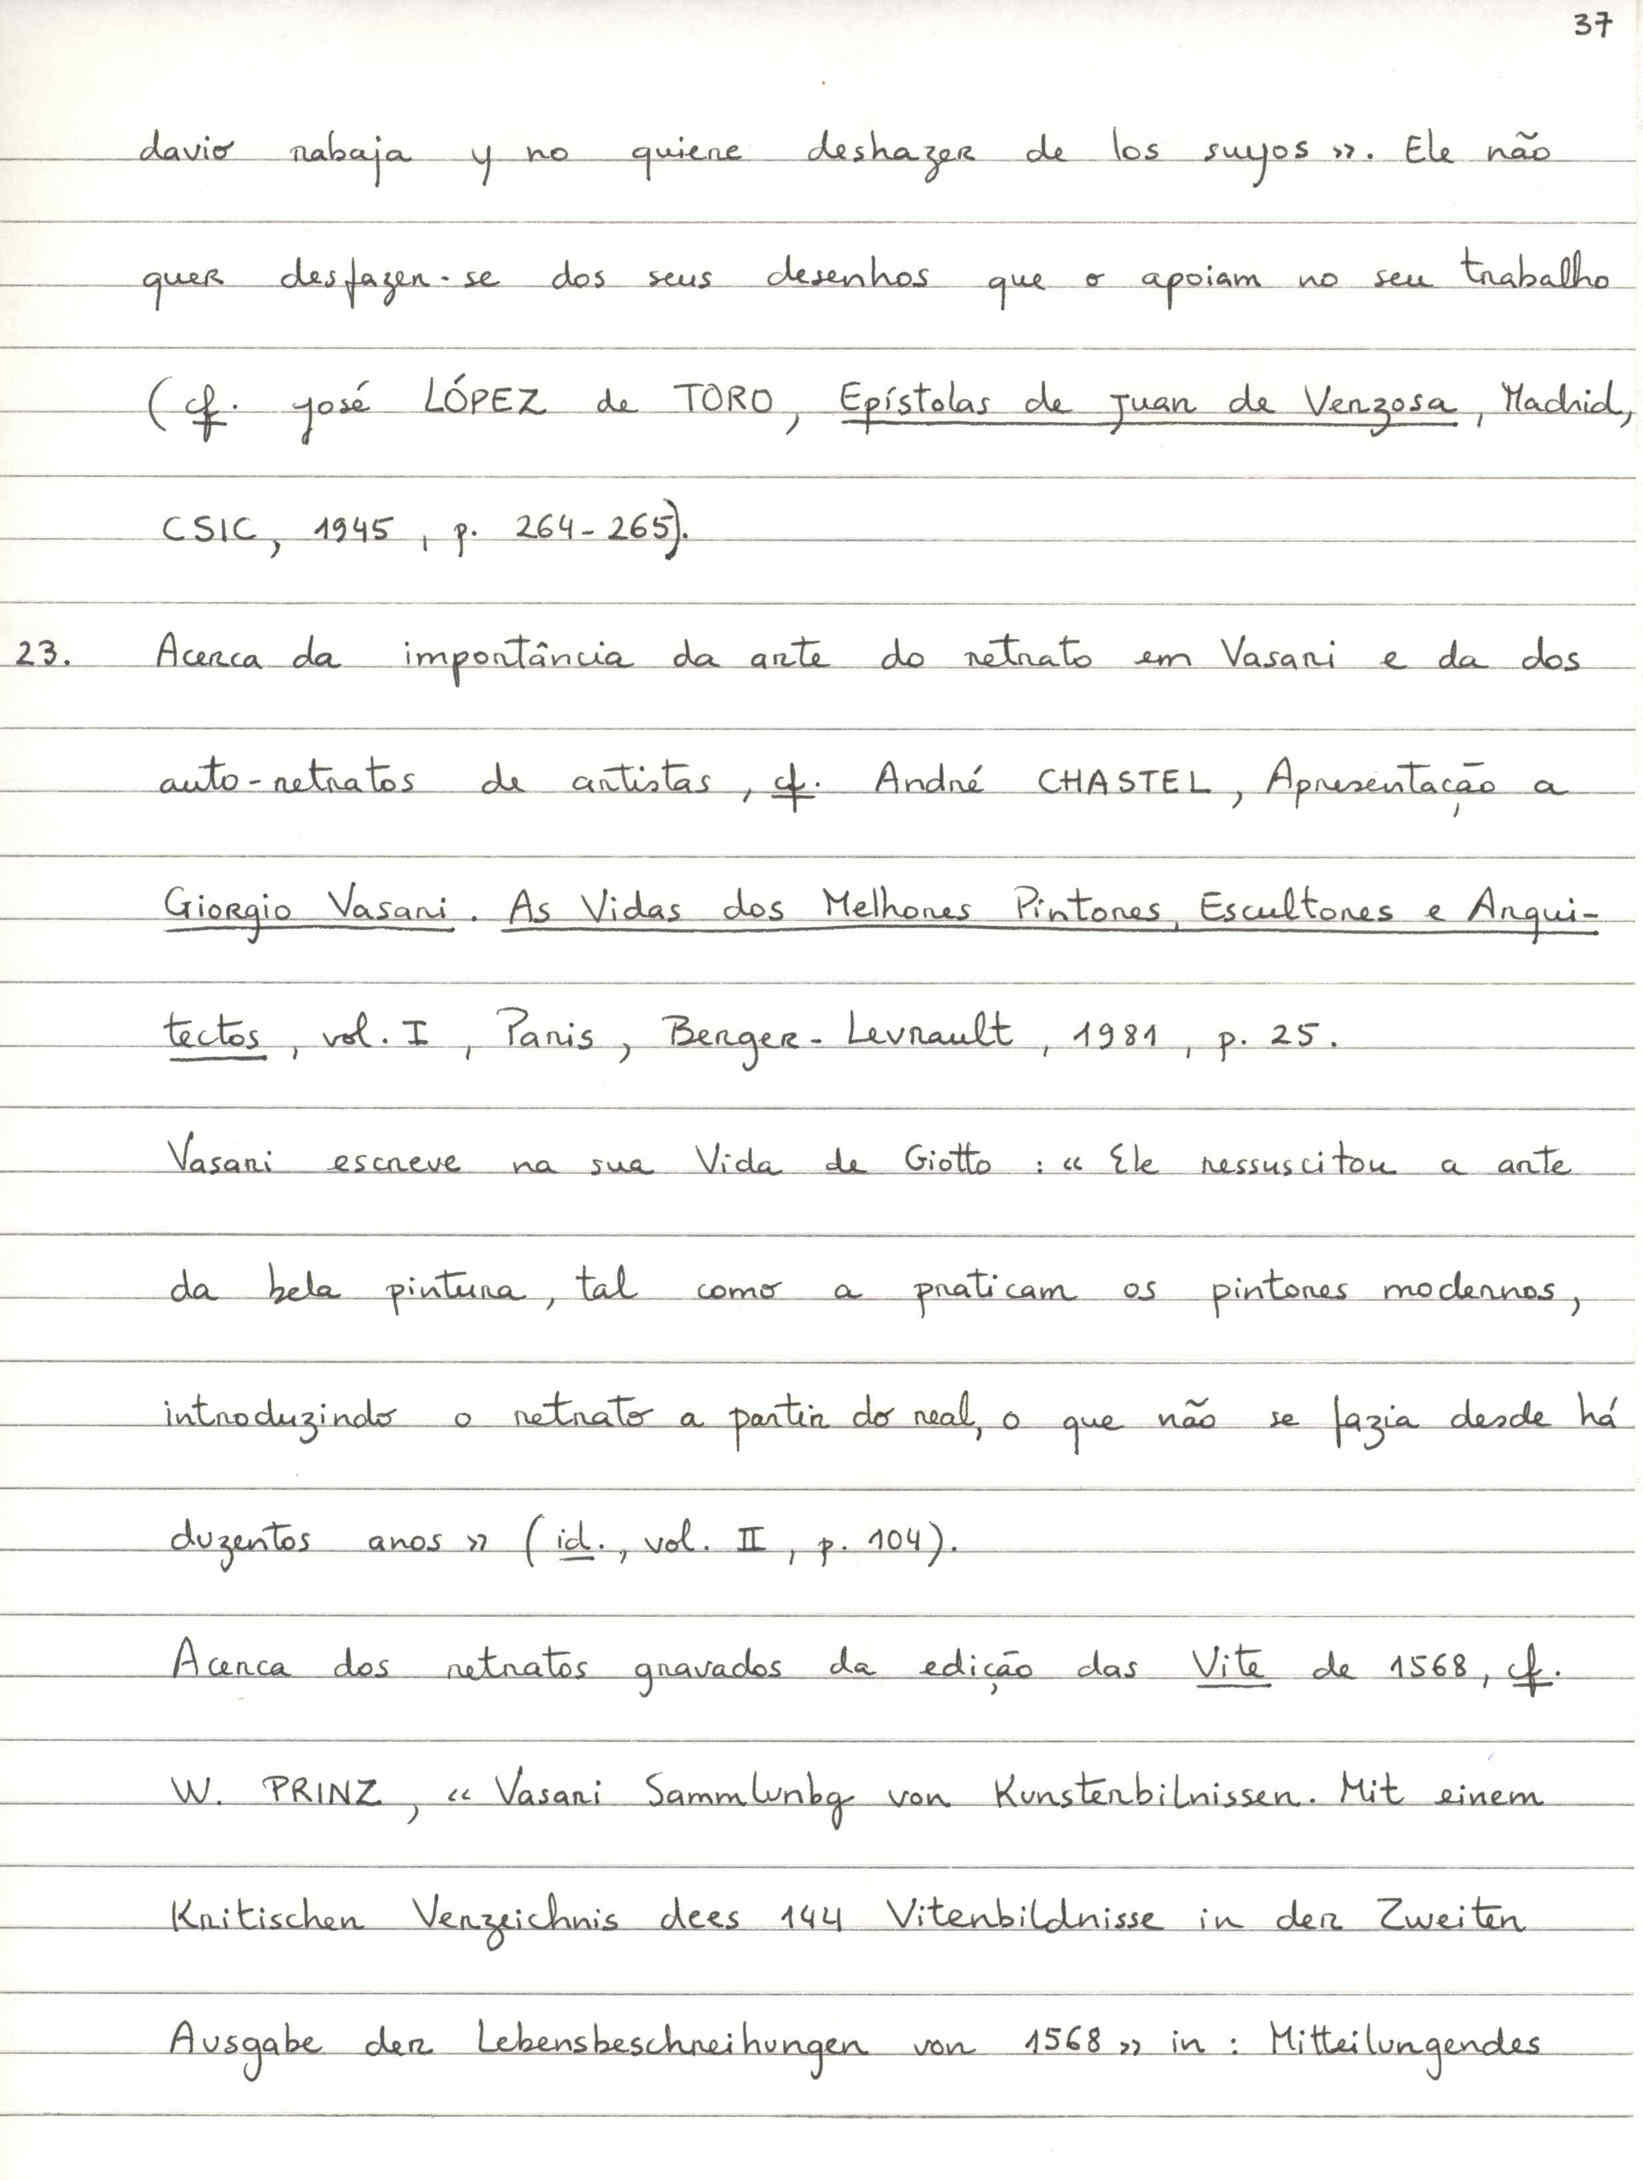 37
davio rabaja y no quiere deshazer de los suyos ». Ele não
quer desfazer-se dos seus desenhos que o apoiam no seu trabalho
(cf. José LÓPEZ de TORO, Epístolas de Juan de Verzosa, Madrid,
CSIC, 1945, p. 264-265).
23. Acerca da importância da arte do retrato em Vasari e da dos
auto-retratos de artistas, cf. André CHASTEL, Apresentação a
Giorgio Vasari. As Vidas dos Melhores Pintores, Escultores e Arqui-
tectos, vol. I, Paris, Berger-Levrault, 1981, p. 25.
Vasari escreve na sua Vida de Giotto : « Ele ressuscitou a arte
da bela pintura, tal como a praticam os pintores modernos,
introduzindo o retrato a partir do real, o que não se fazia desde há
duzentos anos » (id., vol. II, p. 104).
Acerca dos retratos gravados da edição das Vite de 1568, cf.
W. PRINZ, « Vasari Sammlunbg von Kunsterbilnissen. Mit einem
Kritischen Verzeichnis dees 144 Vitenbildnisse in der Zweiten
Ausgabe der Lebensbeschreihungen von 1568 » in : Mitteilungendes